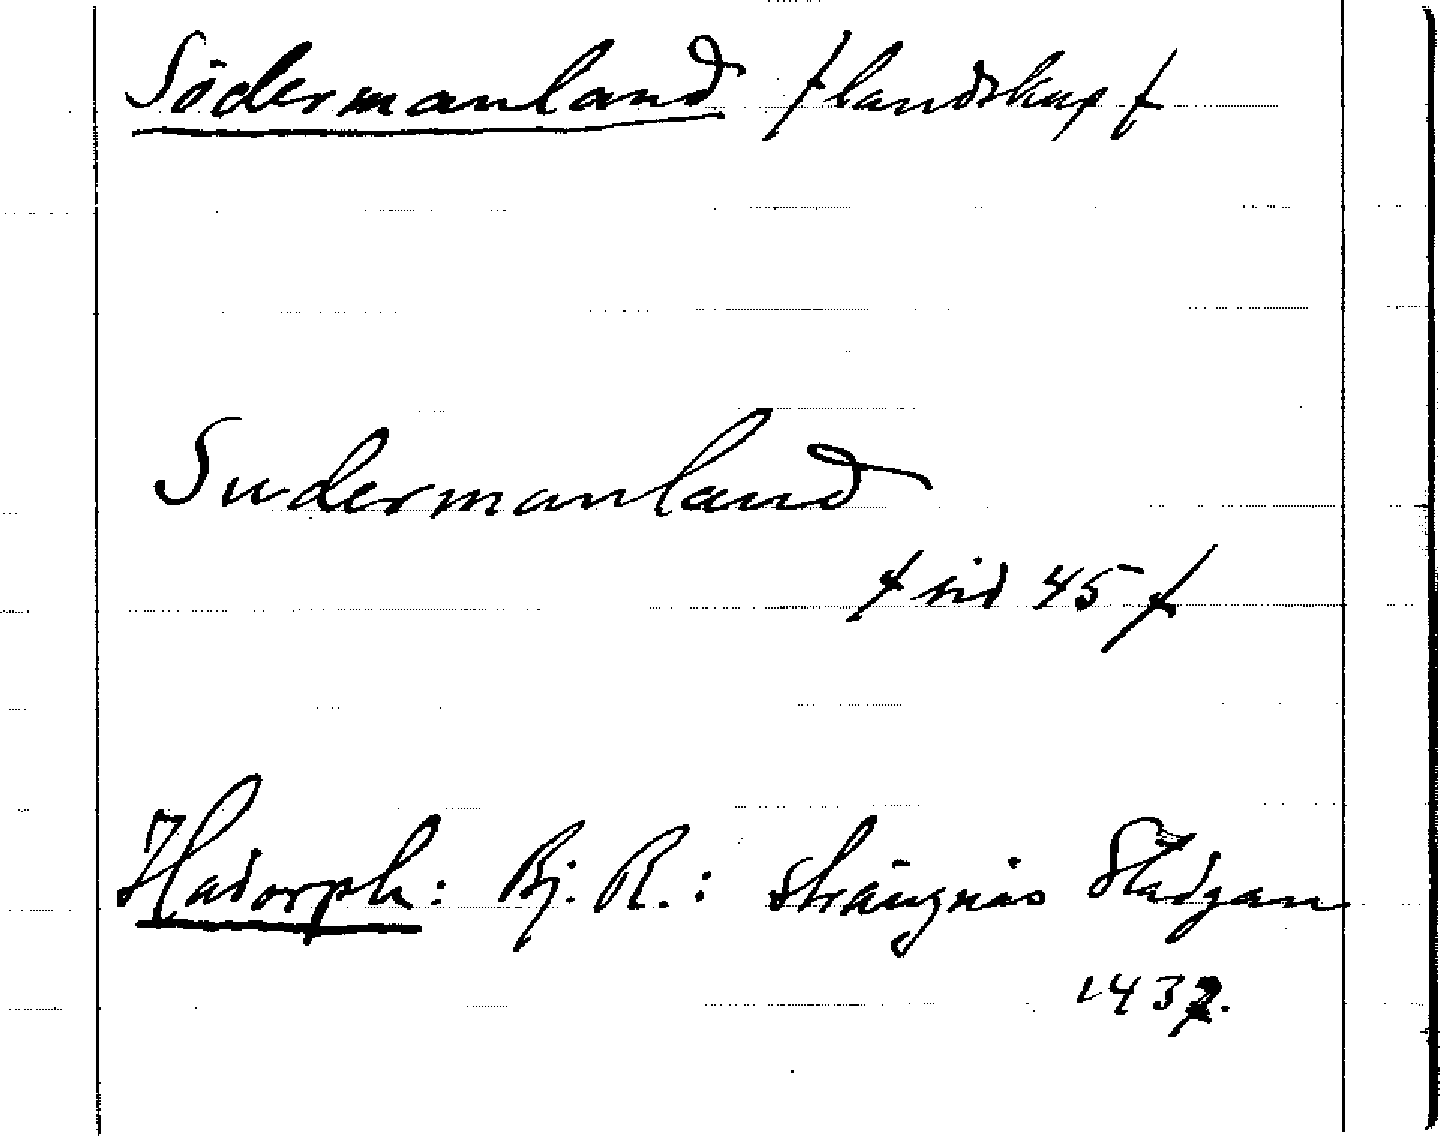 Södermanland /landskap/
Sudermanland
/sid 45/
Hadorph: Bj. R.: Strängnäs Stadgan
1437.